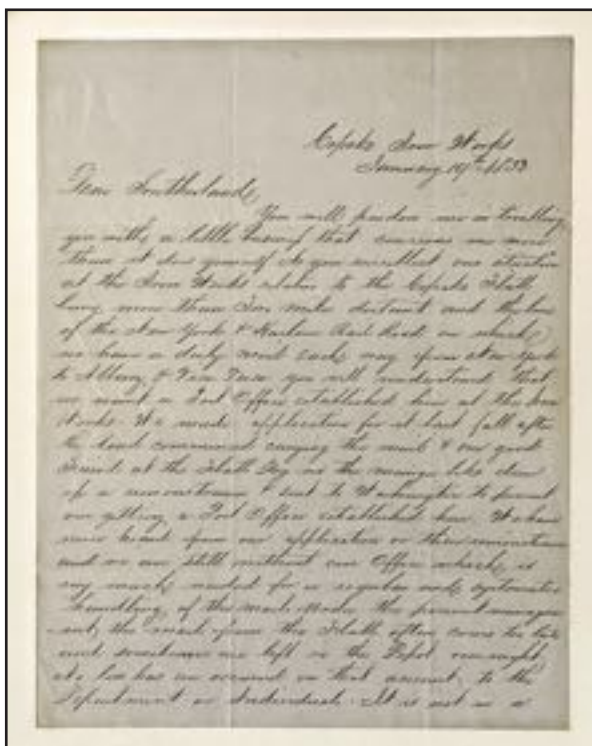 Copake Iron Works
January 19th 1853
Dear Southerland,
You will pardon me in troubling
you with a little business that concerns me more
than it does yourself. As you recollect our situation
at the Iron Works relative to the Copake Flatt
being more than two miles distant and the line
of the New York & Harlem Rail Road on which
we have a daily mail each way from New York
to Albany & vice versa you will understand that
we want a Post Office established here at the Iron
Works. We made application for it last fall after
the road commenced carrying the mail & our good
friend at the Flatt in the manger like drew
up a remonstrance & sent to Washington to prevent
our getting a Post Office established here. We have
never heard from our application or their remonstrance
and we are still without our Office which is
very much needed for a regular and systematic
handling of the mail. Under the present manage
ment, the mail from the Flatt often comes too late
and sometimes are left in the Depot over night
No loss has on that account, to the
Department or Individuals. It is not in a